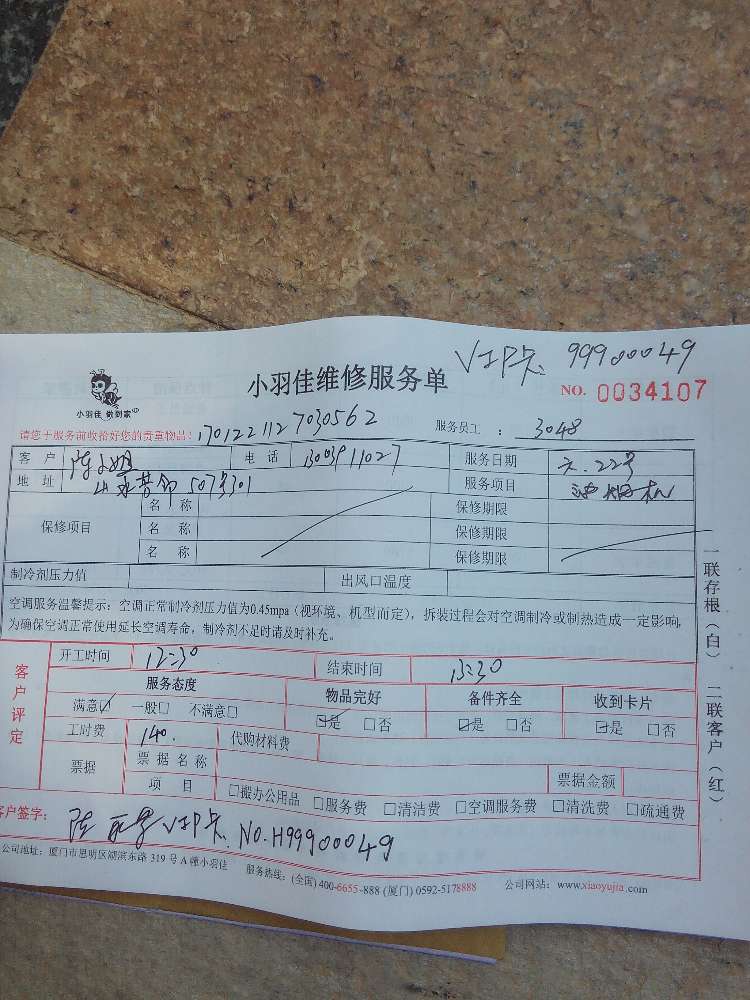 VIP卡 99900049
小羽佳 做到家
小羽佳维修服务单
NO. 0034107
请您于服务前收拾好您的贵重物品: 1701221127030562
服务员工 : 3048
客户 陈小姐 电话 13003911027 服务日期 元.22号
地址 507号301 服务项目 油烟机
保修项目 名称 保修期限
名称 保修期限
名称 保修期限
制冷剂压力值 出风口温度
空调服务温馨提示:空调正常制冷剂压力值为0.45mpa(视环境、机型而定),拆装过程会对空调制冷或制热造成一定影响,
为确保空调正常使用延长空调寿命,制冷剂不足时请及时补充。
客户评定
开工时间 12:30 结束时间 13:30
服务态度 物品完好 备件齐全 收到卡片
满意☑ 一般□ 不满意□ ☑是 □否 ☑是 □否 ☑是 □否
工时费 140. 代购材料费
票据 票据名称 票据金额
项目 □搬办公用品 □服务费 □清洁费 □空调服务费 □清洗费 □疏通费
客户签字: 陈 VIP卡 NO.H99900049
公司地址:厦门市思明区湖滨东路319号A幢小羽佳 服务热线:(全国)400-6655-888 (厦门)0592-5178888 公司网站:www.xiaoyujia.com
一联存根(白) 二联客户(红)